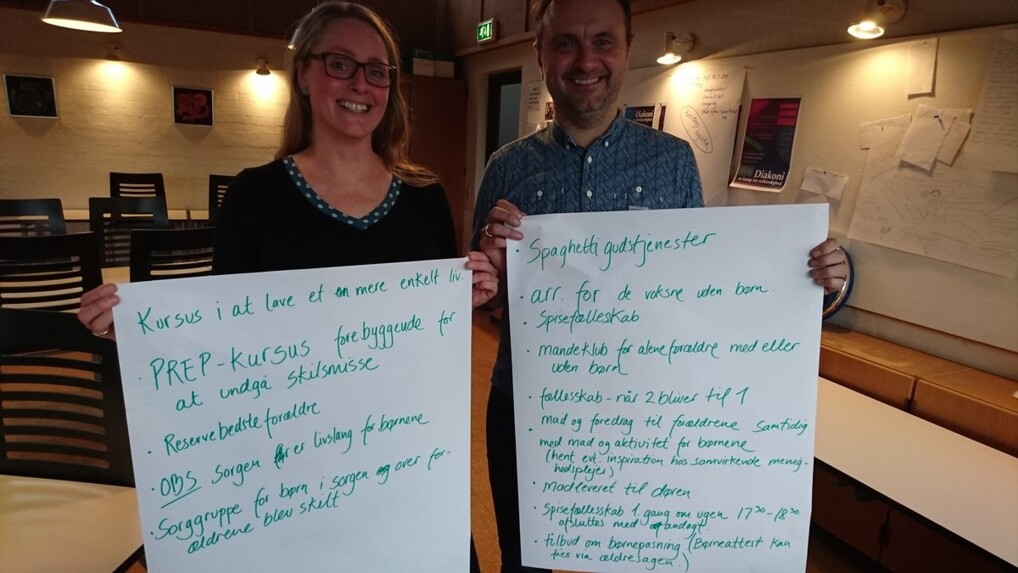 Kursus i at lave et mere enkelt liv.
· PREP-kursus forebyggende for
at undgå skilsmisse
· Reservebedsteforældre
· OBS Sorgen er livslang for børnene
· Sorggruppe for børn i sorgen over for-
ældrene blev skilt
· Spaghetti gudstjenester
· arr. for de voksne uden børn.
· Spisefælleskab
· mandeklub for aleneforældre med eller
uden børn
· fællesskab - når 2 bliver til 1
· mad og foredrag til forældrene samtidig
med mad og aktivitet for børnene
(hent evt. inspiration hos samvirkende menig-
hedsplejer)
· mad leveret til døren
· Spisefællesskab 1. gang om ugen 17³⁰-18³⁰
afsluttes med andagt.
· tilbud om børnepasning (Børneattest kan
fåes via ældresagen.)
Diakoni